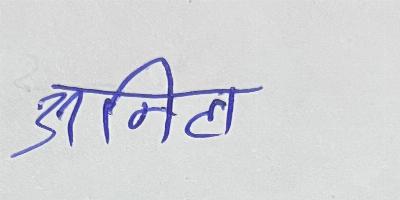 अमिल